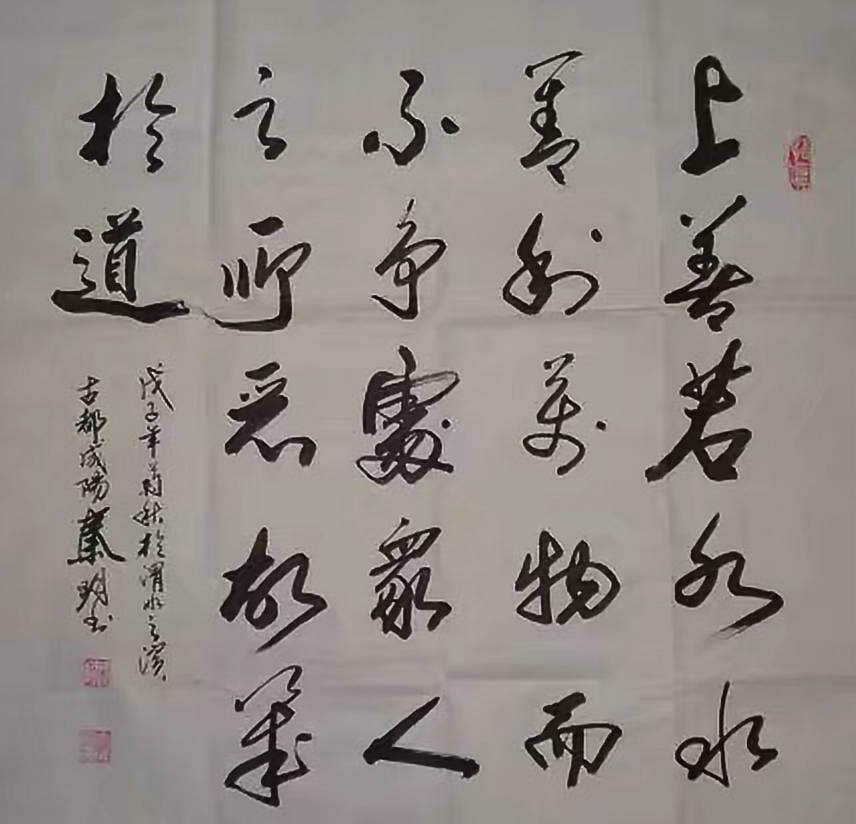 上善若水水
善利萬物而
不争處衆人
之所惡故幾
於道
戊子年菊秋於渭水之濱
古都咸陽秦书